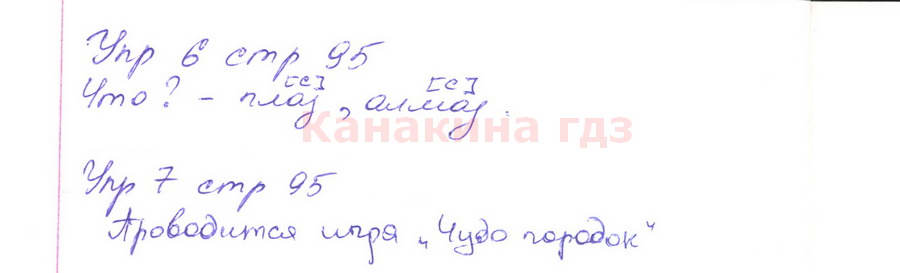 Упр 6 стр 95
[с] [с]
Что? - глаз, алмаз.
Канакина гдз
Упр 7 стр 95
Проводится игра „Чудо городок"